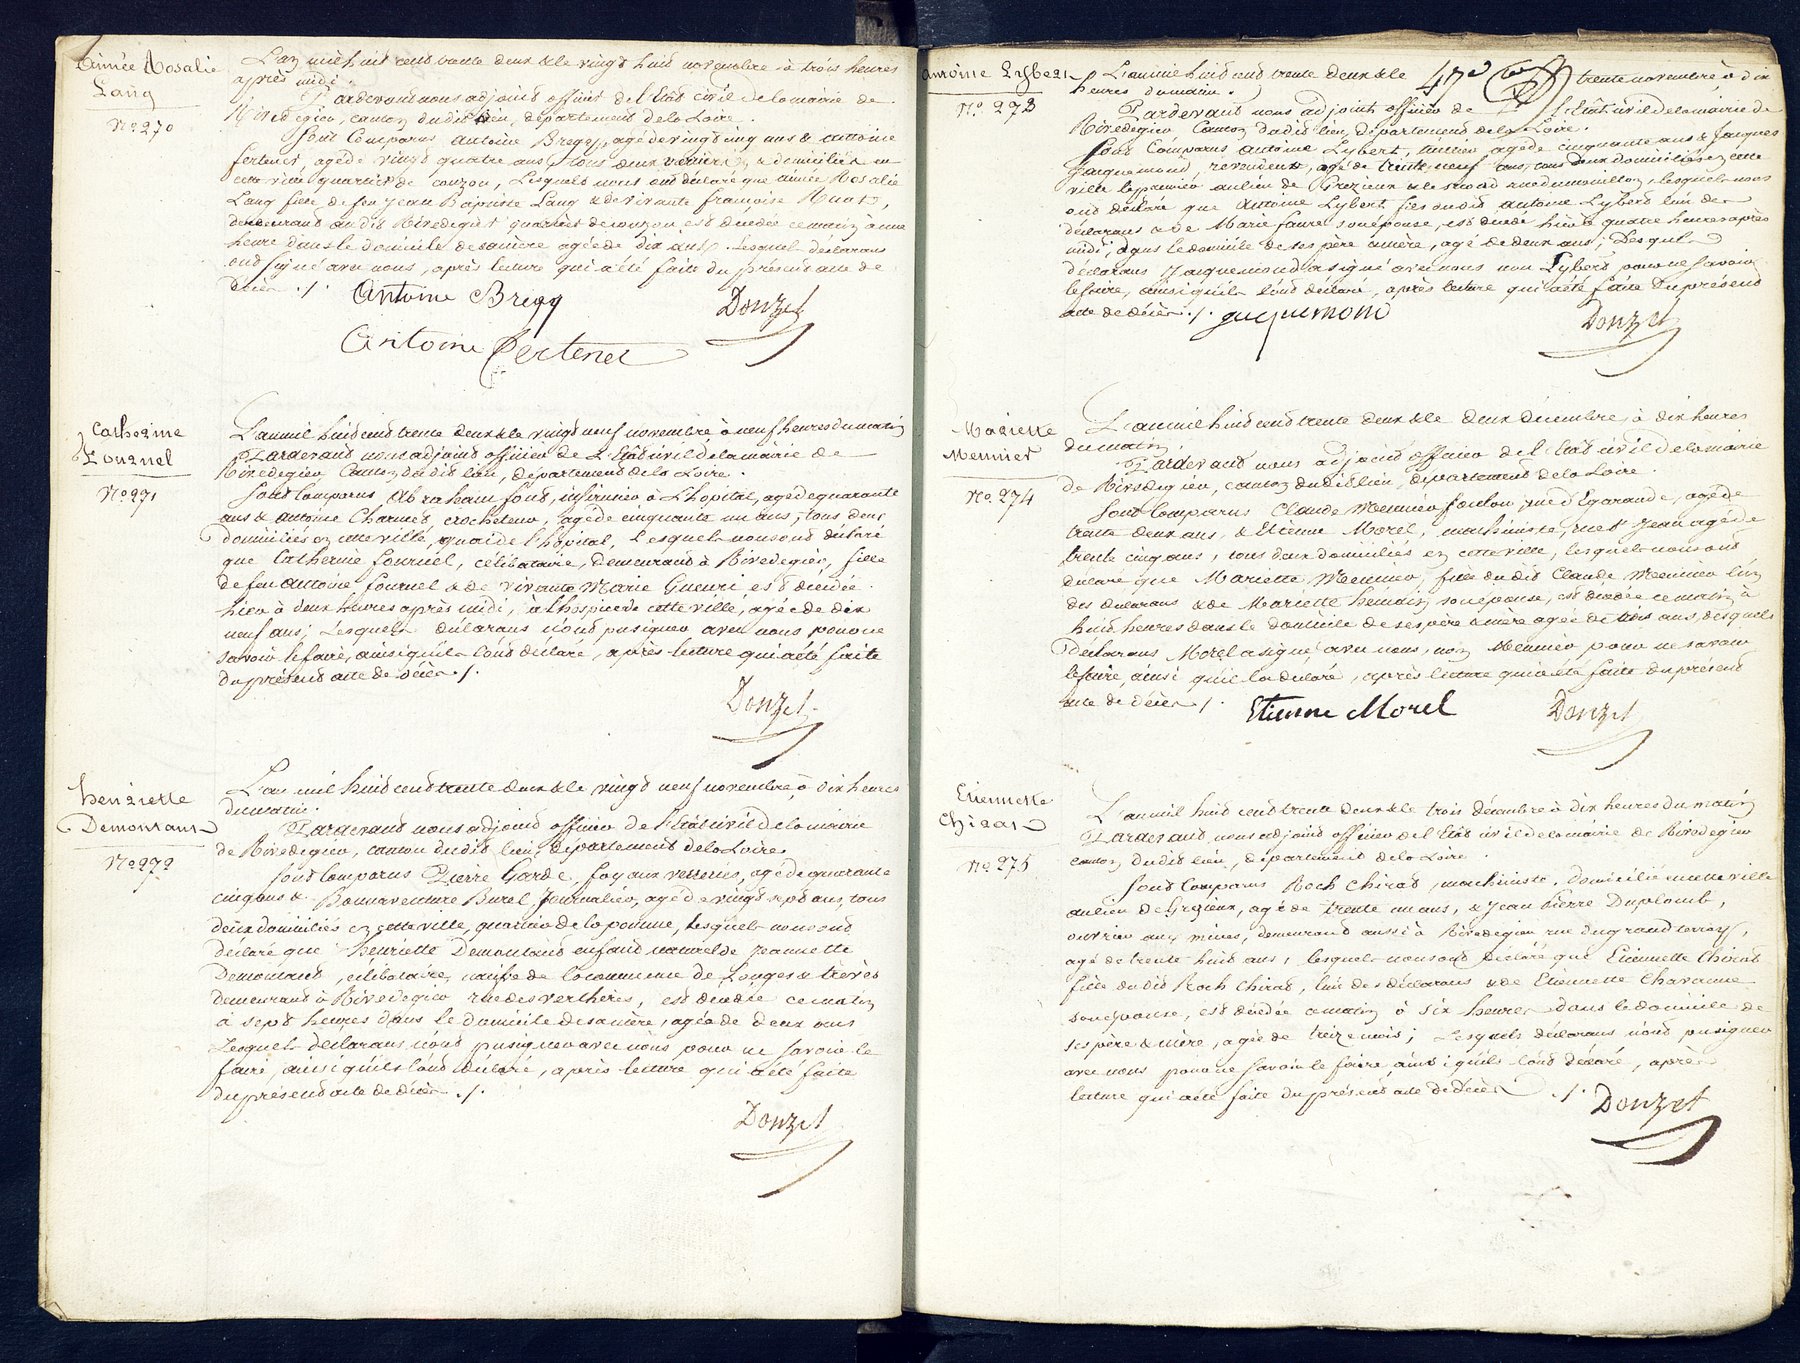 Aimée Rosalie
Lang
N.o 270
L'an mil huit cent trente deux & le vingt huit novembre à trois heures
après midi.
Pardevant nous adjoint officier de l'Etat civil de la mairie de
Rivedegier, canton dudit lieu, département de la Loire.
Sont Comparus Antoine Bregg, agé de vingt cinq ans & Antoine
Fertenet, agé de vingt quatre ans, tous deux verriers & domiciliés en
cette ville quartier de couzon, Lesquels nous ont déclaré que aimée Rosalie
Lang fille de feu Jean Baptiste Lang & de vivante françoise
demeurant au dit Rivedegier quartier de couzon, est décédée ce matin à une
heure dans le domicile de sa mère agée de dix ans. Lesquels déclarans
ont signé avec nous, après lecture qui a été faite du présent acte de
décès ./.
Antoine Bregg
Donzet
Antoine Fertenet
Catherine
Fournel
N.o 271
L'an mil huit cent trente deux & le vingt neuf novembre à neuf heures du matin
Pardevant nous adjoint officier de L'Etat civil de la mairie de
Rivedegier Canton dudit lieu, département de la Loire.
Sont Comparus Abraham font, infirmier à L'hopital, agé de quarante
ans & Antoine Charmet, crocheteur, agé de cinquante un ans, tous deux
domiciliés en cette ville, quai de l'hopital, Lesquels nous ont déclaré
que Catherine fournel, célibataire, demeurant à Rivedegier, fille
de feu Antoine fournel & de vivante Marie Gueuri est décédée
hier à deux heures après midi, à l'hospice de cette ville, agée de dix
neuf ans; Lesquels déclarans n'ont pu signer avec nous pour ne
savoir le faire, ainsi qu'ils l'ont déclaré, après lecture qui a été faite
du présent acte de décès ./.
Donzet
henriette
Demontant
N.o 272
L'an mil huit cent trente deux & le vingt neuf novembre à dix heures
du matin.
Pardevant nous adjoint officier de l'Etat civil de la mairie
de Rivedegier, canton dudit lieu, département de la Loire
Sont Comparus Pierre Garde, agé de quarante
cinq ans & Bonnaventure Burel, Journalier, agé de vingt sept ans, tous
deux domiciliés en cette ville, quartier de la pomme, Lesquels nous ont
déclaré que henriette Demontant enfant naturel de Jeannette
Demontant, célibataire, native de la commune de Longes & trèves
demeurant à Rivedegier rue des verchères, est décédée ce matin
à sept heures dans le domicile de sa mère, agée de deux ans
Lesquels déclarans n'ont pu signer avec nous pour ne savoir le
faire, ainsi qu'ils l'ont déclaré, après lecture qui a été faite
du présent acte de décès ./.
Donzet
Antoine Lybert
N.o 273
47e
L'an mil huit cent trente deux & le trente novembre à dix
heures du matin.
Pardevant nous adjoint officier de l'Etat civil de la mairie de
Rivedegier, Canton dudit lieu, Département de la Loire.
Sont Comparus Antoine Lybert, agé de cinquante ans & Jacques
Jacquemond, revendeur, agé de trente neuf ans, tous deux domiciliés en cette
ville le premier au lieu de Grezieux & le second rue du mouillon, lesquels nous
ont déclaré que Antoine Lybert fils dudit Antoine Lybert l'un des
déclarans & de Marie faure son épouse, est décédé hier à quatre heures après
midi, dans le domicile de ses père & mère, agé de deux ans; Desquels
déclarans Jacquemond a signé avec nous non Lybert pour ne savoir
le faire, ainsi qu'ils l'ont déclaré, après lecture qui a été faite du présent
acte de décès ./. jacquemond
Donzet
Mariette
Meunier
N.o 274
L'an mil huit cent trente deux & le deux décembre, à dix heures
du matin.
Pardevant nous adjoint officier de l'Etat civil de la mairie
de Rivedegier, canton dudit lieu, département de la Loire.
Sont Comparus Claude Meunier rue d'Egarande, agé de
trente deux ans, & Etienne Morel, machiniste, rue St Jean agé de
trente cinq ans, tous deux domiciliés en cette ville, lesquels nous ont
déclaré que Mariette Meunier, fille dudit Claude Meunier l'un
des déclarans & de Mariette hémain son épouse, est décédée ce matin à
huit heures dans le domicile de ses père & mère agée de trois ans, desquels
Déclarans Morel a signé avec nous, non Meunier pour ne savoir
le faire, ainsi qu'il l'a déclaré, après lecture qui a été faite du présent
acte de décès ./.
Etienne Morel
Donzet
Etiennette
Chirat
N.o 275
L'an mil huit cent trente deux & le trois décembre à dix heures du matin
Pardevant nous adjoint officier de l'Etat civil de la mairie de Rivedegier
canton dudit lieu, département de la Loire.
Sont Comparus Roch Chirat, machiniste, domicilié en cette ville
au lieu de Grezieux, agé de trente un ans, & Jean Pierre Duplomb,
ouvrier aux mines, demeurant aussi à Rivedegier rue du grand
agé de trente huit ans, lesquels nous ont déclaré que Etiennette Chirat
fille dudit Roch Chirat, l'un des déclarans & de Etiennette Chavanne
son épouse, est décédée ce matin à six heures dans le domicile de
ses père & mère, agée de treize mois; Lesquels déclarans n'ont pu signer
avec nous pour ne savoir le faire ainsi qu'ils l'ont déclaré, après
lecture qui a été faite du présent acte de décès ./.
Donzet